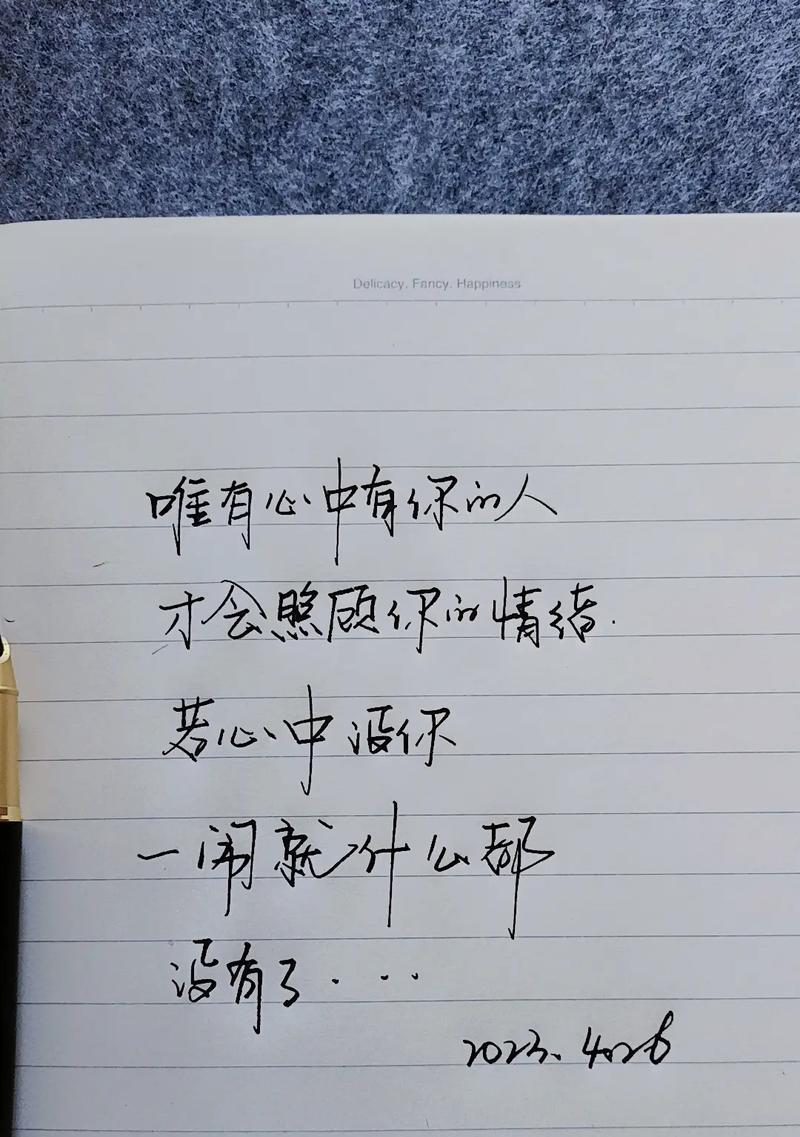 Delicacy. Fancy. Happiness
唯有心中有你的人
才会照顾你的情绪.
若心中没你
一闹就什么都
没有了...
2023. 4.26